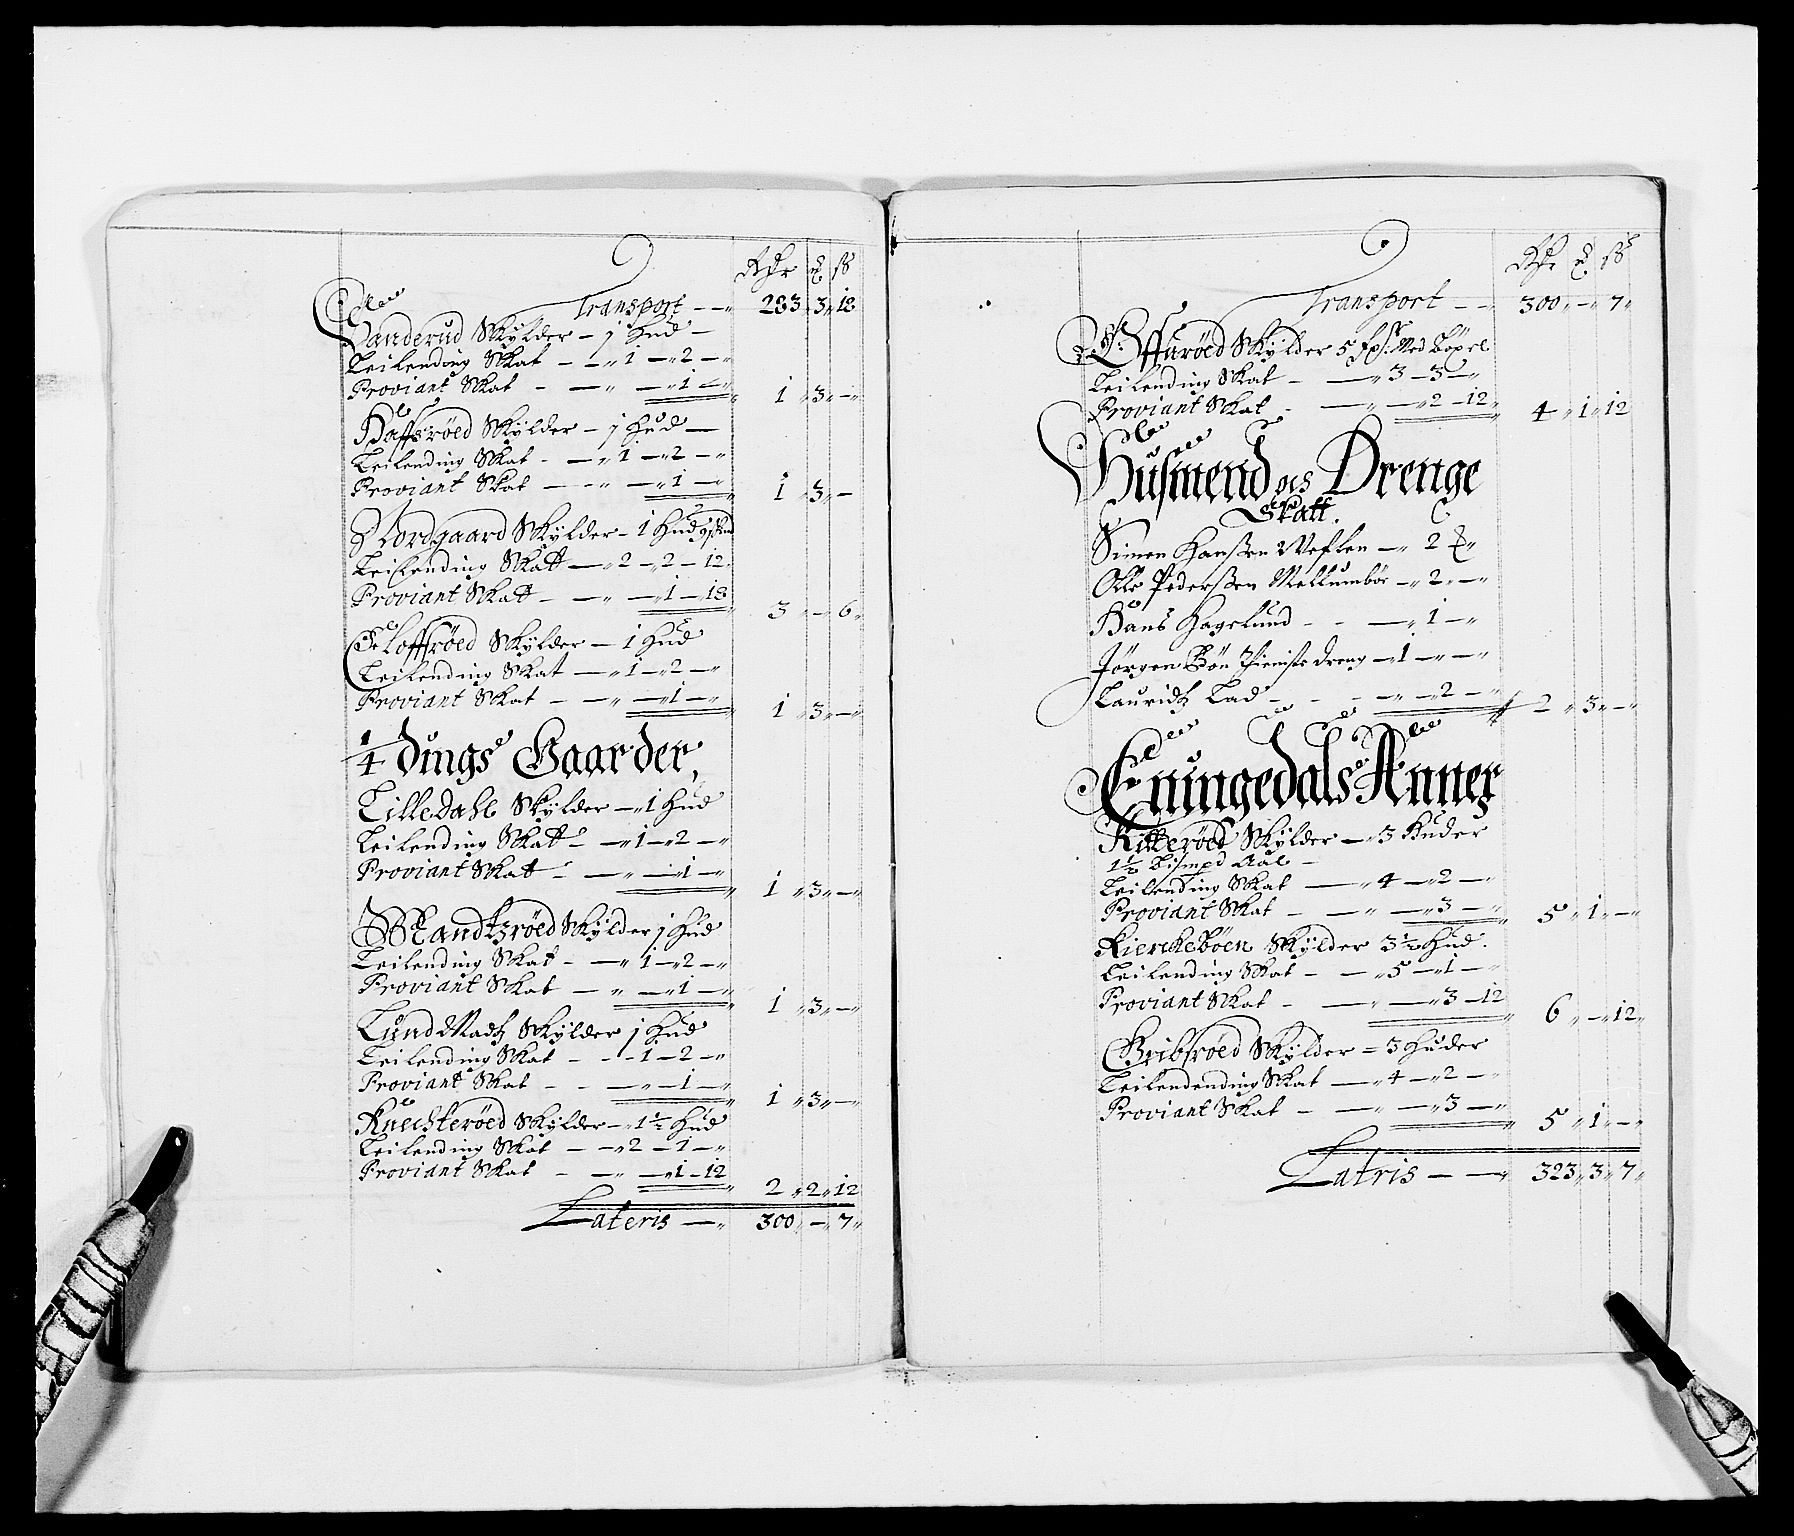 Rdr ʒ ß
Transport — „ 283 „ 3 „ 18
Sanderud Skylder — j Hud —
Leilending Skat — — „ 1 — „ 2 — „
Proviant Skat - — „ — „ 1 — „ 1 „ 3 „ — „
Haffsröed Skylder — j Hud —
Leilending Skat - — „ 1 — „ 2 — „
Proviant Skat — - „ — „ 1 — „ 1 „ 3 „ —
Nordgaard Skylder — 1 Hud
Leilending Skatt — „ 2 — „ 2 — 12 „
Proviant Skatt — — „ — „ 1 — 18 3 „ — „ 6 „
Eloffröed Skylder — 1 Hud
Leilending Skat — „ 1 — „ 2 — „
Proviant Skat — — „ — „ 1 — „ 1 „ 3 „ — „
1/4 dings Gaarder,
Lilledahl Skylder — „ 1 Hud
Leilending Skatt — — „ 1 — „ 2 — „
Proviant Skatt — — „ — „ 1 — „ 1 „ 3 „ — „
Skylder j Hud
Leilending Skat - — „ 1 — „ 2 — „
Proviant Skat — „ — „ 1 — „ 1 „ 3 „ — „
Skylder j Hud
Leilending Skat - - - 1 — 2 — „
Proviant Skat - - — „ — 1 — „ 1 „ 3 „ — „
Knechteröed Skylder — „ 1 1/2 Hud
Leilending Skat — — „ 2 — 1 — „
Proviant Skat — — „ — „ 1 — 12 2 „ 2 „ 12
Lateris — „ 300 „ — „ 7 „
Rdr ʒ ß
Transport — „ 300 „ — „ 7 „
Skylder 5 Med Böxel
Leilending Skat - — „ 3 — 3 — „
Proviant Skat - — „ — „ 2 — 12 „ 4 „ 1 „ 12
Husmend och Drenge
Skatt.
Simen Hanßen — „ 2
Olle Pederßen Mellumbör — „ 2 „ — „
Hans Hagelund - - — „ 1 — „
Jörgen Thieniste dreng — „ 1 — „ — „
Lauridz Lad - - - — „ — „ 2 — „ 2 „ 3 „ — „
Eningedals Anner
Killeröed Skylder — „ 3 Huder
1 1/2 Bismpd Aal —
Leilending Skat — „ 4 — „ 2 — „
Proviant Skat — — „ — „ 3 — „ 5 „ 1 „ — „
Kierckeböen Skylder 3 1/2 Hud.
Leilending Skat - — „ 5 — „ 1 — „
Proviant Skat - — „ — „ 3 — 12 6 „ — „ 12 „
Gribsröed Skylder = 3 Huder
Leilendending Skat — „ 4 — „ 2 — „
Proviant Skat — — „ — „ 3 — „ 5 „ 1 „ — „
Latris — — „ 323 „ 3 „ 7 „